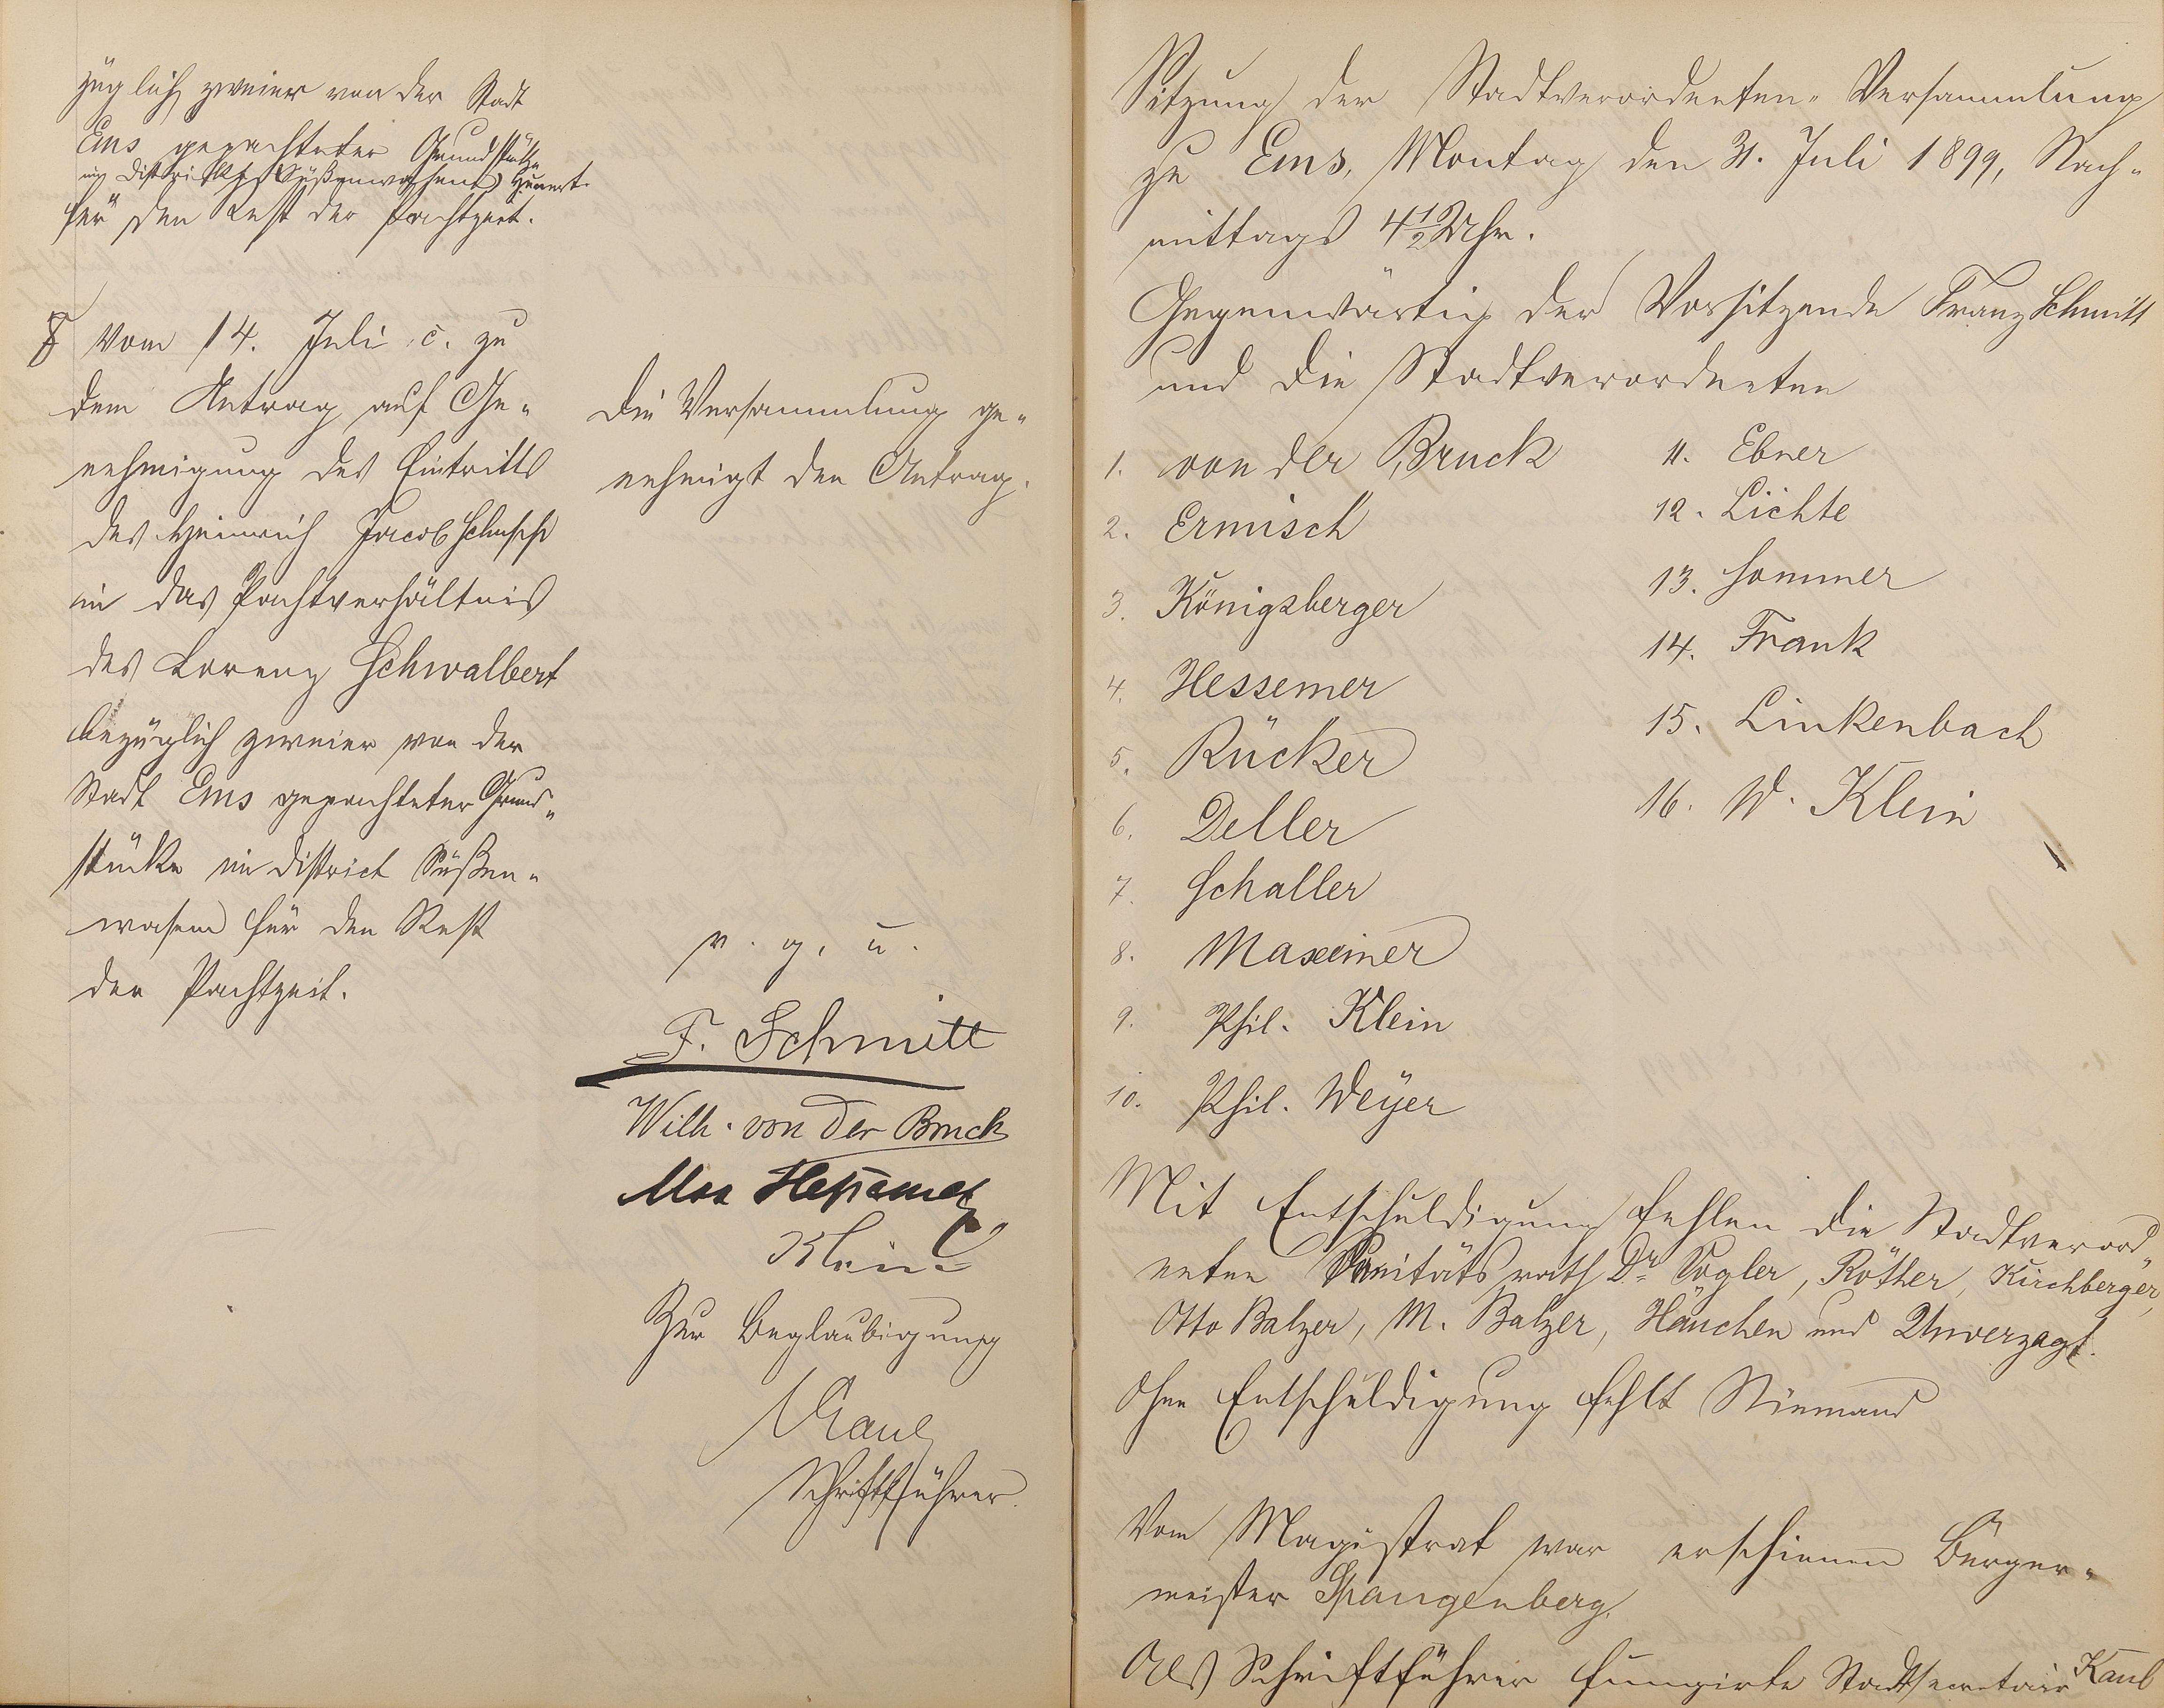 züglich zweier von der Stadt
Ems gepachteter Grundstücke
im District Süßenwasem
für den Rest der Pachtzeit.
8 Vom 14. Juli c. zu
dem Antrag auf Ge-
nehmigung des Eintritts
des Heinrich Jacob
in das Pachtverhältnis
des Lorenz Schwalbert
bezüglich zweier von der
Stadt Ems gepachteter Grund-
stücke im District Süßen-
wasem für den Rest
der Pachtzeit.
Die Versammlung ge-
nehmigt den Antrag.
v. g. u.
F. Schmitt
Wilh. von der Bruck
Max Hessemer
Klein
Zur Beglaubigung
Kaul
Schriftführer.
Sitzung der Stadtverordneten-Versammlung
zu Ems, Montag den 31. Juli 1899, Nach-
mittags 4 1/2 Uhr.
Gegenwärtig der Vorsitzende Franz Schmitt
und die Stadtverordneten
1. von der Bruck
2. Ermisch
3. Königsberger
4. Hessemer
5. Rücker
6. Deller
7. Schaller
8. Maxeiner
9. Phil. Klein
10. Phil. Weyer
11. Ebner
12. Lichte
13. Sommer
14. Frank
15. Linkenbach
16. W. Klein
Mit Entschuldigung fehlen die Stadtverord-
neten Sanitätsrath Dr. Vogler, Röther, Kirchberger,
Otto Balzer, M. Balzer, Häuchen und Unverzagt.
Ohne Entschuldigung fehlt Niemand
Vom Magistrat war erschienen Bürger-
meister Spangenberg.
Als Schriftführer fungirte Stadtsecretair Kaul